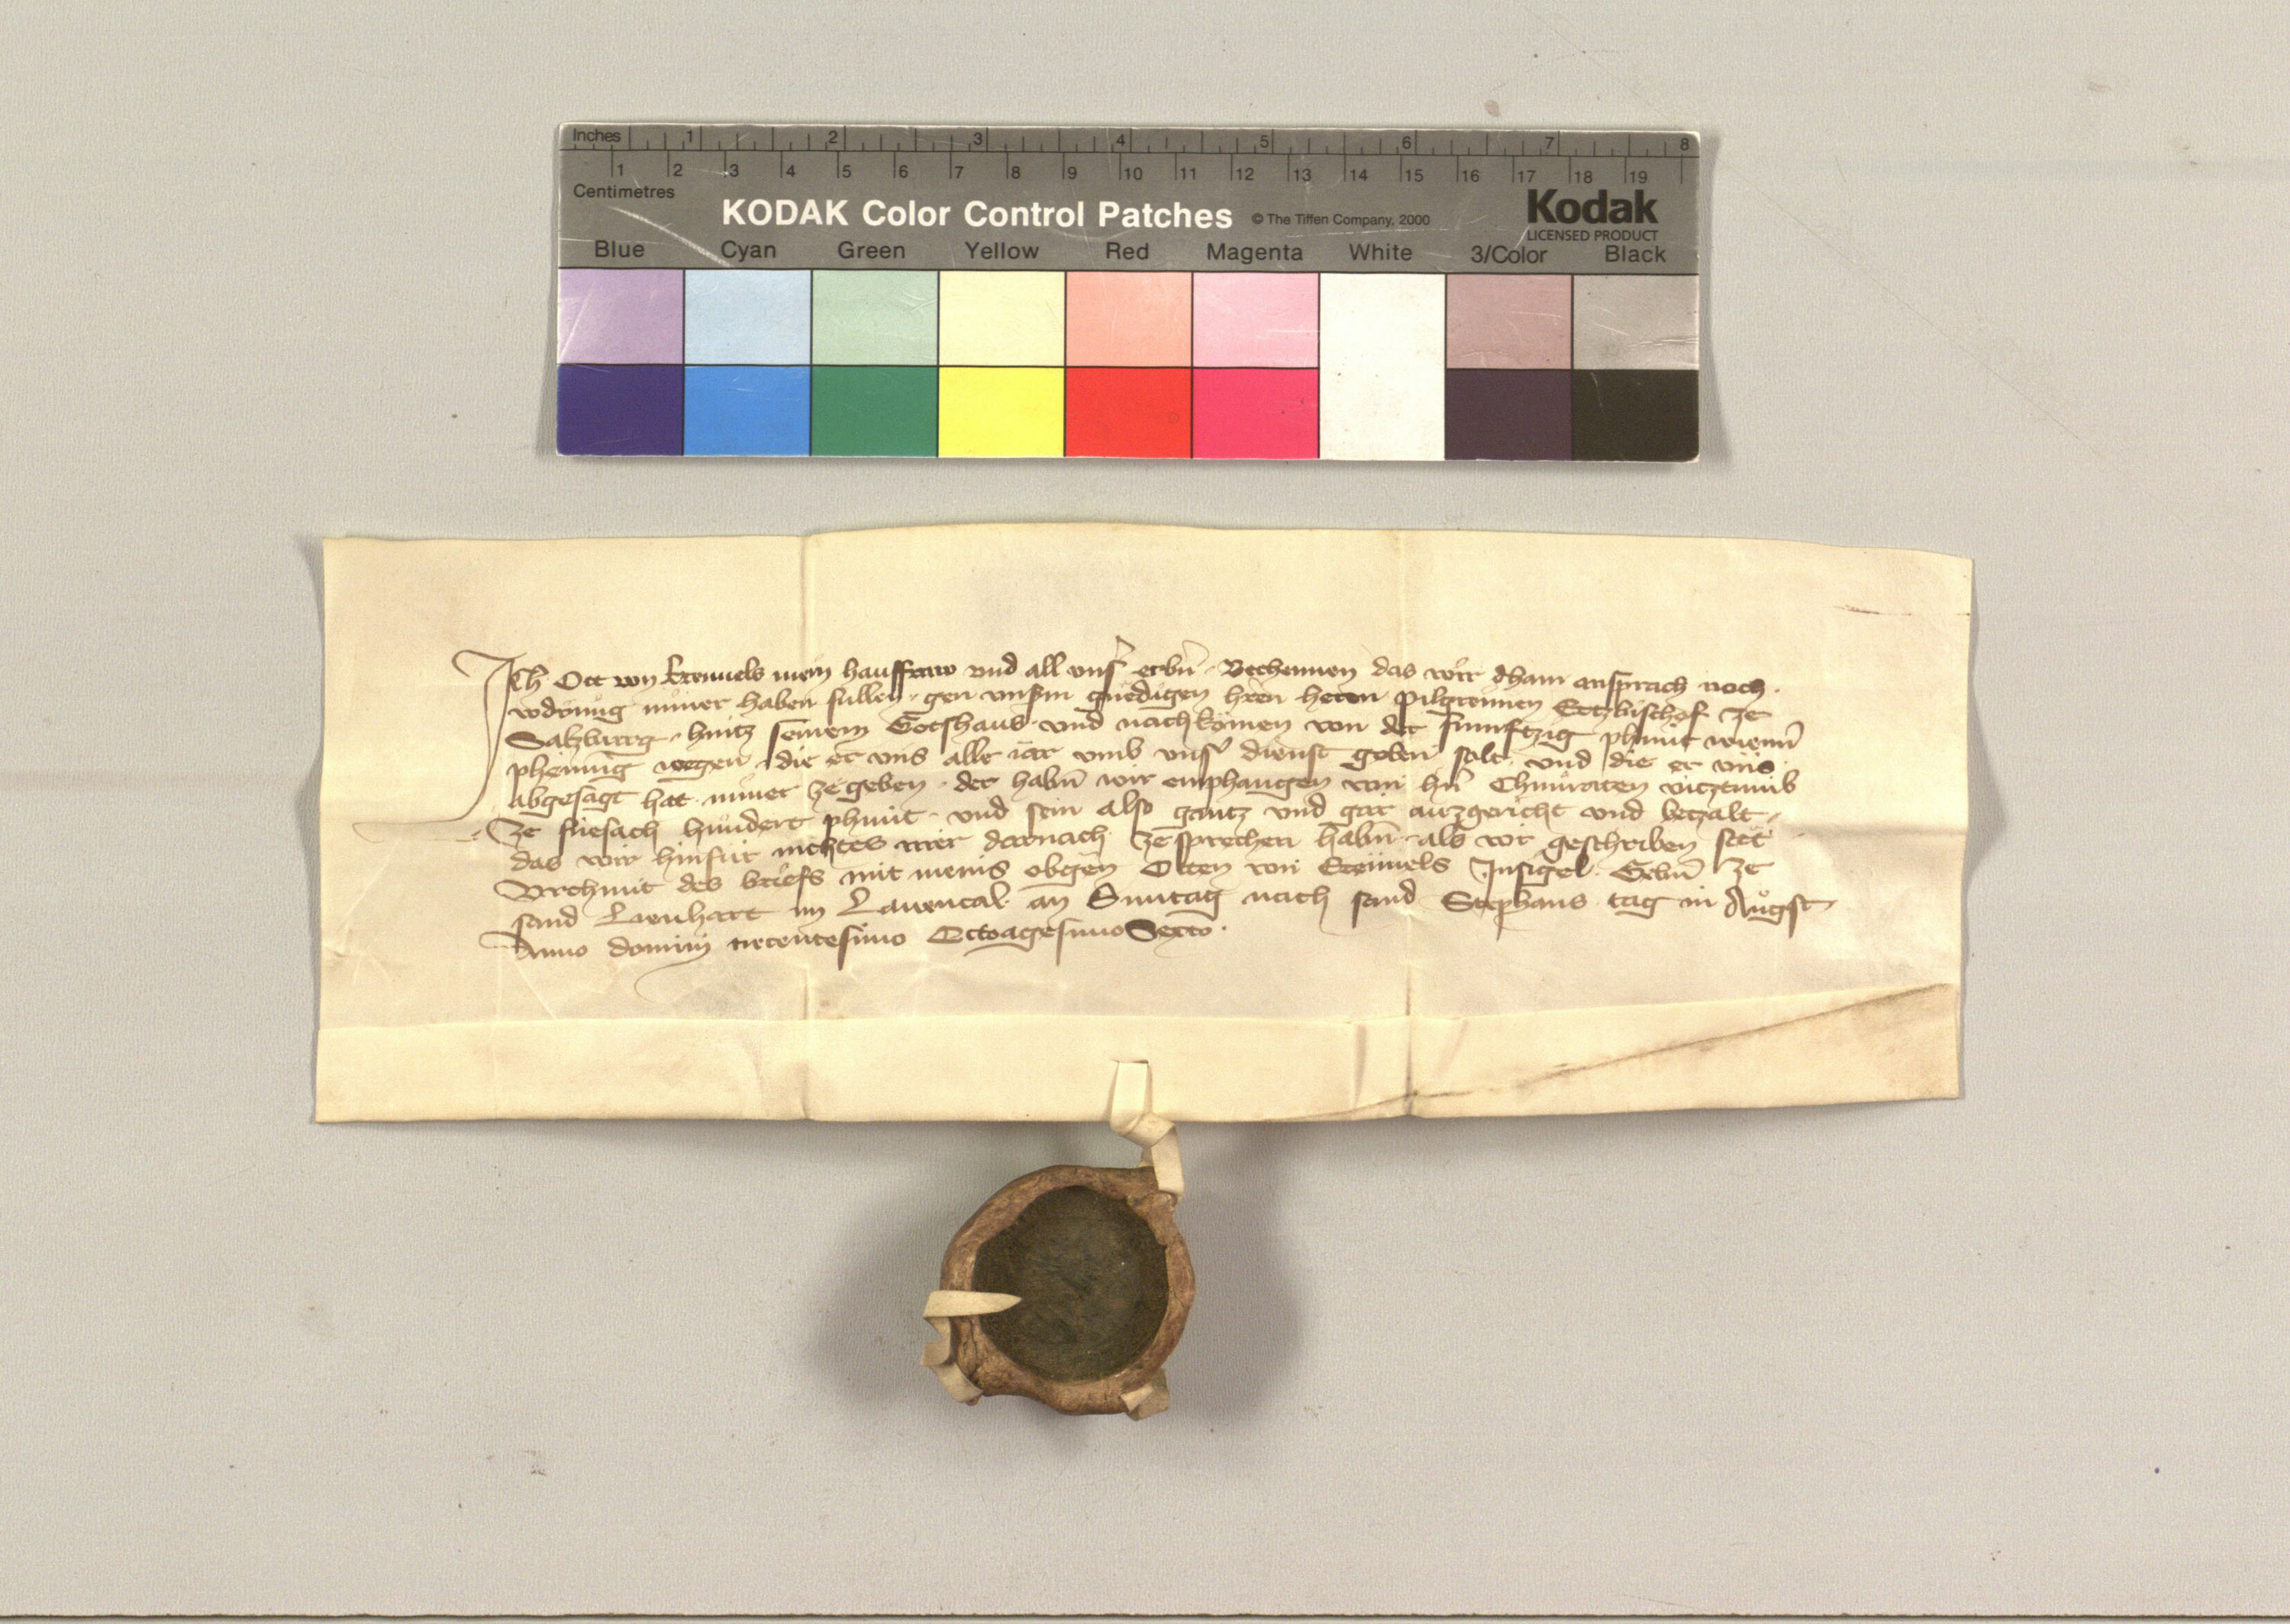 Inches 1 2 3 4 5 6 7 8
1 2 3 4 5 6 7 8 9 10 11 12 13 14 15 16 17 18 19
Centimetres
KODAK Color Control Patches © The Tiffen Company, 2000 Kodak
LICENSED PRODUCT
Blue Cyan Green Yellow Red Magenta White 3/Color Black
Ich Ott von mein hausfraw vnd all vnser erbn̄ Bechennen das wir dhain ansprach noch
vodrung nimer haben sullen gen vnserm gnedigen hren hern Pilgreimen Ertzbischof ze
Salzburg hintz seinem Gotshaus vnd nachkomen von der funftzig phunt wienn̄
phennig wegen die er vns alle iar vmb vnser dienst geben solt vnd die er vns
abgesagt hat nimer ze geben der habn̄ wir emphangen von hn̄ Chunraten vicztumb
ze friesach hundert phunt vnd sein also gantz vnd gar auzgericht vnd betzalt
das wir hinfur nichtes mer darnach ze sprechen habn̄ als vor geschriben stet
Vrchunt des briefs mit meins obgen̄ Otten von Insigel Gebn̄ ze
sand Lienhart im Lauental an Suntag nach sand Stephans tag in Augst
Anno domini trecentesimo Octoagesimo Sexto